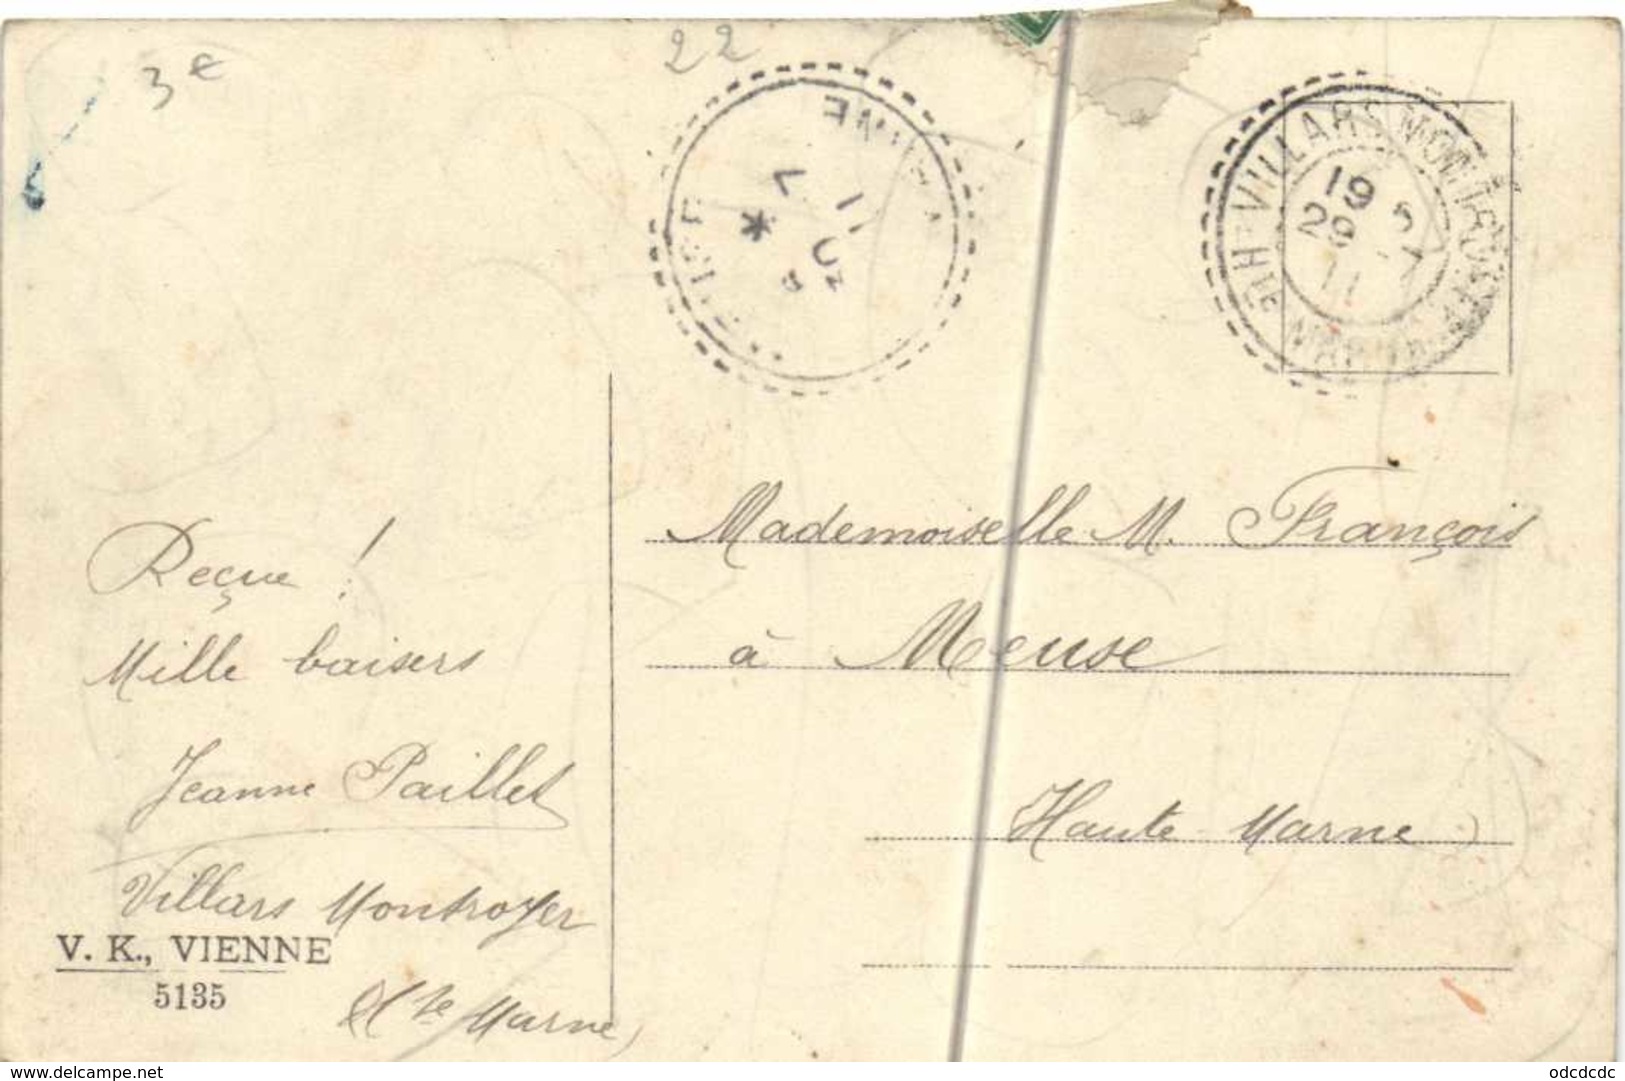 3e
22
VILLARS MONTROYER
Hte MARNE
19
28 7
11
Mademoiselle M. François
à Meuse
Haute-Marne
Reçue !
Mille baisers
Jeanne Paillet
Villars Montroyer
(Hte Marne)
V. K., VIENNE
5135
www.delcampe.net
odcdcdc